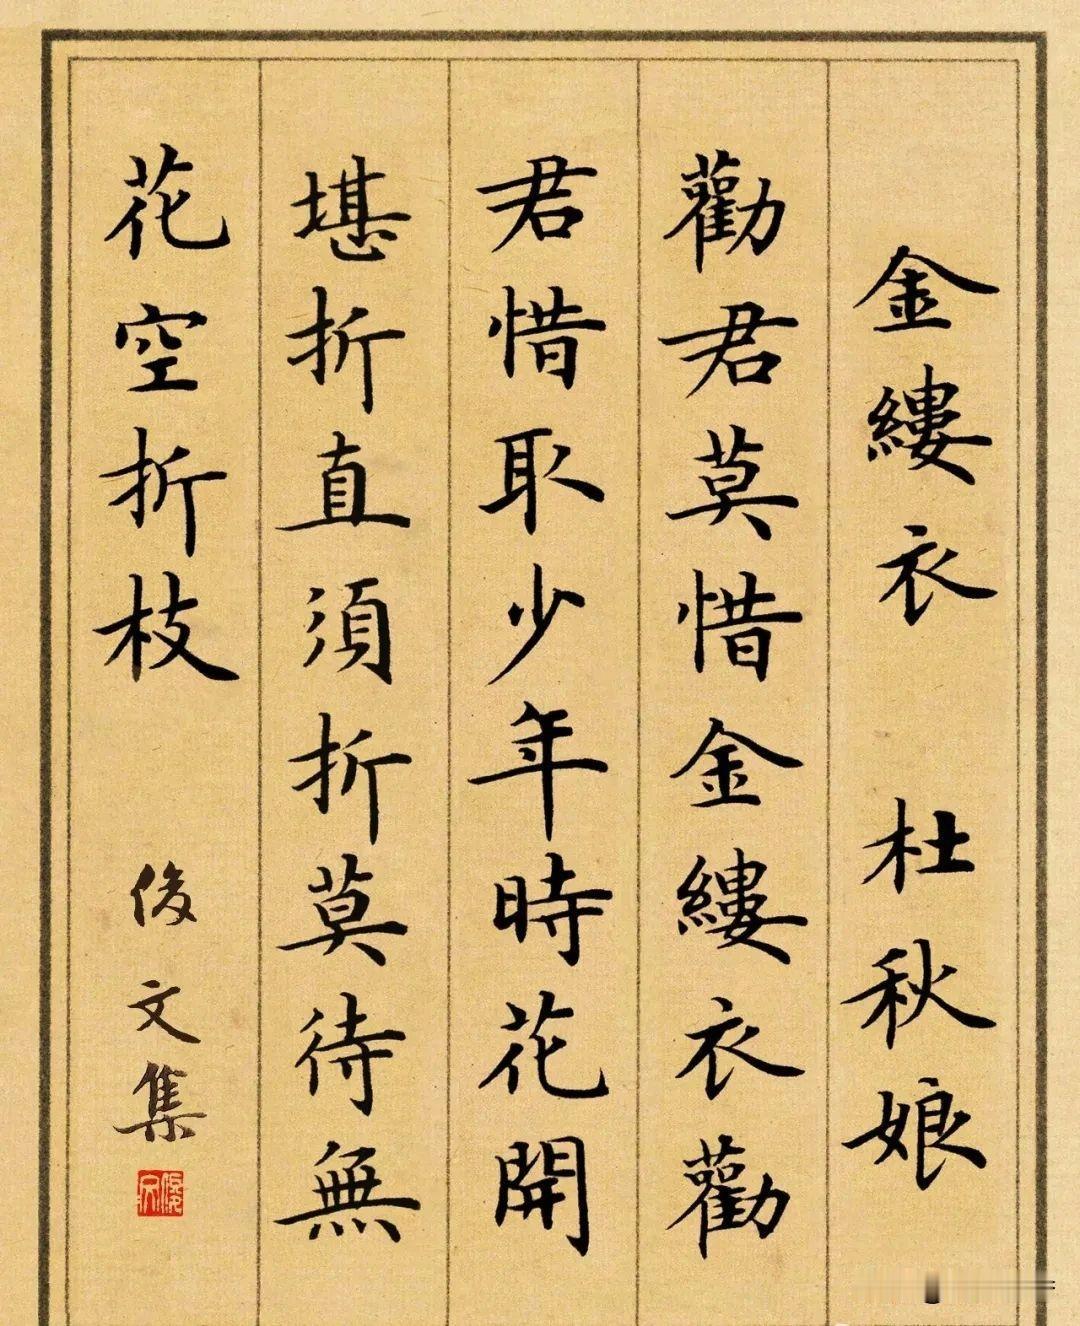 金縷衣 杜秋娘
勸君莫惜金縷衣勸
君惜取少年時花開
堪折直須折莫待無
花空折枝 俊文集
俊文